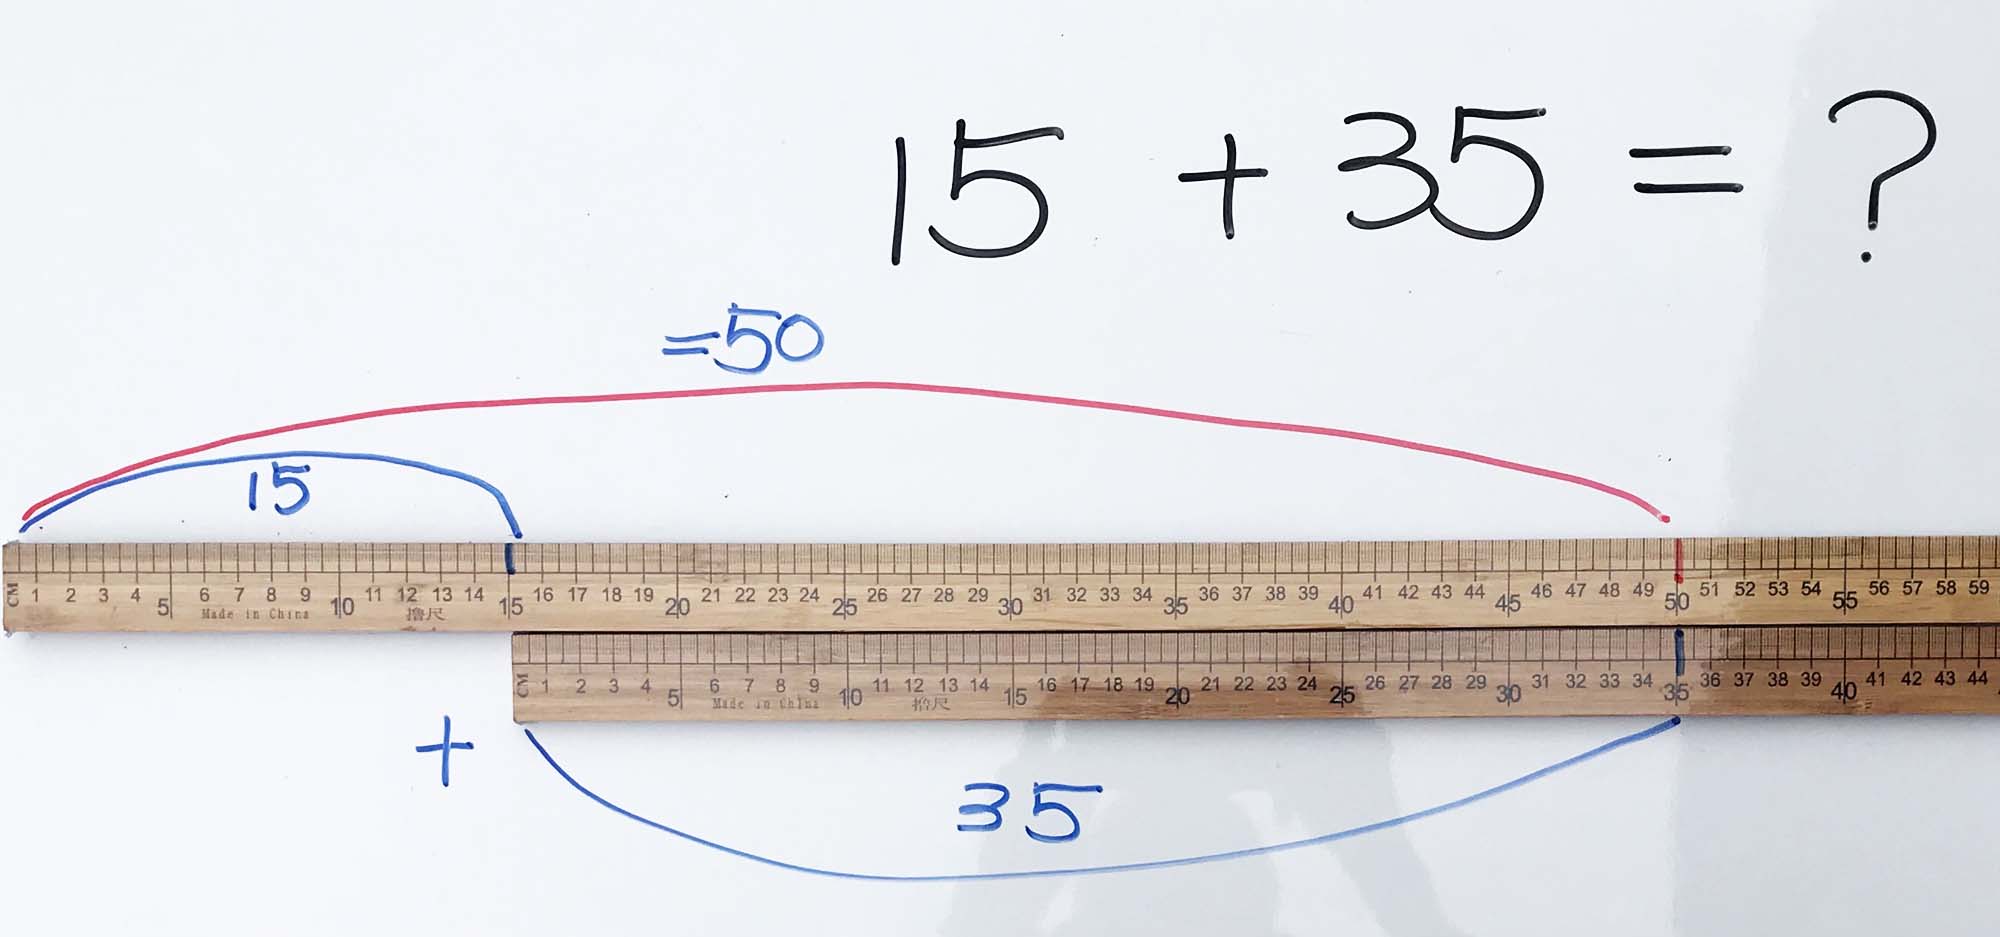 15 + 35 = ?
=50
15
CM 1 2 3 4 5 6 7 8 9 10 11 12 13 14 15 16 17 18 19 20 21 22 23 24 25 26 27 28 29 30 31 32 33 34 35 36 37 38 39 40 41 42 43 44 45 46 47 48 49 50 51 52 53 54 55 56 57 58 59
Made in China
CM 1 2 3 4 5 6 7 8 9 10 11 12 13 14 15 16 17 18 19 20 21 22 23 24 25 26 27 28 29 30 31 32 33 34 35 36 37 38 39 40 41 42 43 44
Made in China
+
35